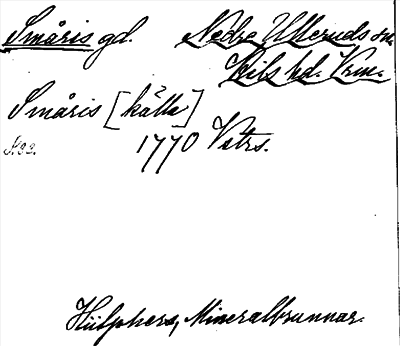 Småris gd. Nedre Ulleruds sn.
Kils hd. Vrm.
Småris [källa]
1770 Vstrs.
Hülphers, Mineralbrunnar.